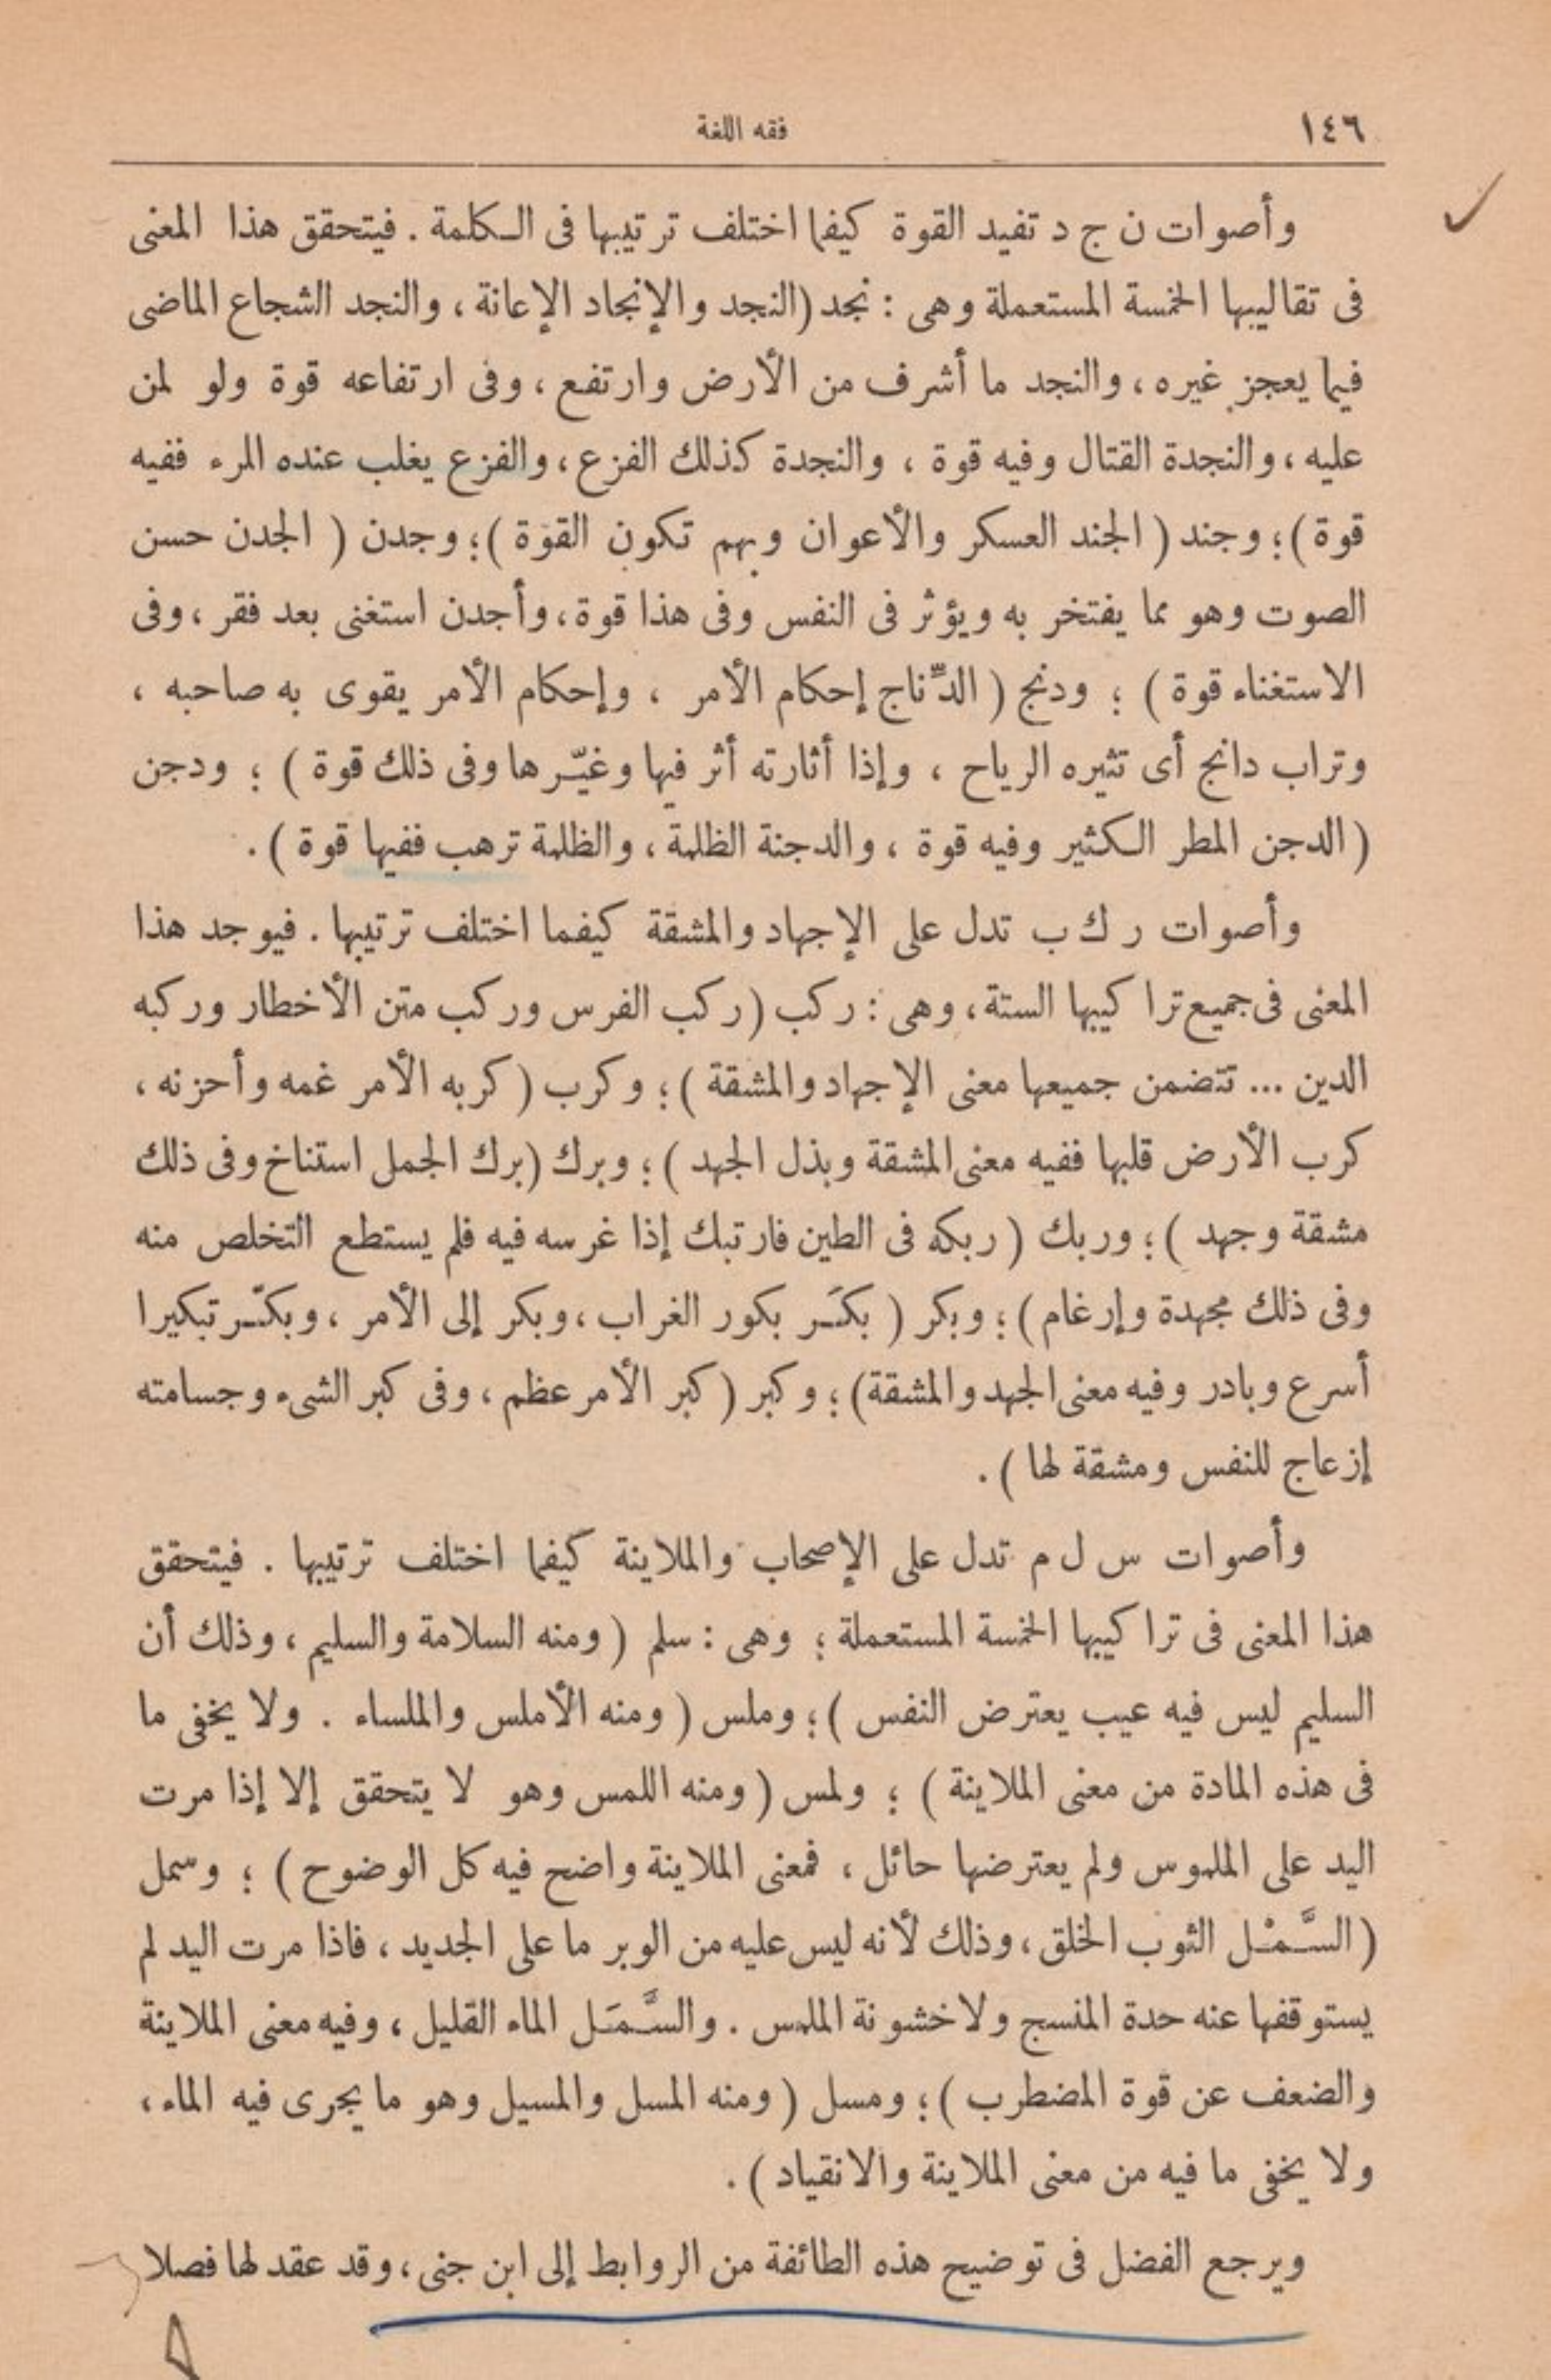 ١٤٦
فقه اللغة
وأصوات ن ج د تفيد القوة كيفما اختلف ترتيبها فى الكلمة . فيتحقق هذا المعنى
فى تقاليبها الخمسة المستعملة وهى : نجد (النجد والإنجاد الإعانة ، والنجد الشجاع الماضى
فيما يعجز غيره ، والنجد ما أشرف من الأرض وارتفع ، وفى ارتفاعه قوة ولو لمن
عليه ، والنجدة القتال وفيه قوة ، والنجدة كذلك الفزع ، والفزع يغلب عنده المرء ففيه
قوة ) ؛ وجند ( الجند العسكر والأعوان وبهم تكون القوة ) ؛ وجدن ( الجدن حسن
الصوت وهو مما يفتخر به ويؤثر فى النفس وفى هذا قوة ، وأجدن استغنى بعد فقر ، وفى
الاستغناء قوة ) ؛ ودنج ( الدِّناج إحكام الأمر ، وإحكام الأمر يقوى به صاحبه ،
وتراب دانج أى تثيره الرياح ، وإذا أثارته أثر فيها وغيّرها وفى ذلك قوة ) ؛ ودجن
( الدجن المطر الكثير وفيه قوة ، والدجنة الظلمة ، والظلمة ترهب ففيها قوة ) .
وأصوات ر ك ب تدل على الإجهاد والمشقة كيفما اختلف ترتيبها . فيوجد هذا
المعنى فى جميع تراكيبها الستة ، وهى : ركب ( ركب الفرس وركب متن الأخطار وركبه
الدين ... تتضمن جميعها معنى الإجهاد والمشقة ) ؛ وكرب ( كربه الأمر غمه وأحزنه ،
كرب الأرض قلبها ففيه معنى المشقة وبذل الجهد ) ؛ وبرك (برك الجمل استناخ وفى ذلك
مشقة وجهد ) ؛ وربك ( ربكه فى الطين فارتبك إذا غرسه فيه فلم يستطع التخلص منه
وفى ذلك مجهدة وإرغام ) ؛ وبكر ( بكَر بكور الغراب ، وبكر إلى الأمر ، وبكّر تبكيرا
أسرع وبادر وفيه معنى الجهد والمشقة) ؛ وكبر ( كبر الأمر عظم ، وفى كبر الشىء وجسامته
إزعاج للنفس ومشقة لها ) .
وأصوات س ل م تدل على الإصحاب والملاينة كيفما اختلف ترتيبها . فيتحقق
هذا المعنى فى تراكيبها الخمسة المستعملة ؛ وهى : سلم ( ومنه السلامة والسليم ، وذلك أن
السليم ليس فيه عيب يعترض النفس ) ؛ وملس ( ومنه الأملس والملساء . ولا يخفى ما
فى هذه المادة من معنى الملاينة ) ؛ ولمس ( ومنه اللمس وهو لا يتحقق إلا إذا مرت
اليد على الملموس ولم يعترضها حائل ، فمعنى الملاينة واضح فيه كل الوضوح ) ؛ وسمل
( السَّمْل الثوب الخلق ، وذلك لأنه ليس عليه من الوبر ما على الجديد ، فاذا مرت اليد لم
يستوقفها عنه حدة المنسج ولا خشونة الملمس . والسَّمَل الماء القليل ، وفيه معنى الملاينة
والضعف عن قوة المضطرب ) ؛ ومسل ( ومنه المسل والمسيل وهو ما يجرى فيه الماء ،
ولا يخفى ما فيه من معنى الملاينة والانقياد ) .
ويرجع الفضل فى توضيح هذه الطائفة من الروابط إلى ابن جنى ، وقد عقد لها فصلا